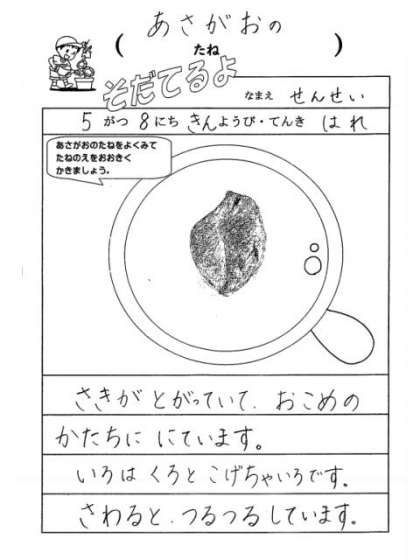 あさがおの
( たね )
そだてるよ
なまえ せんせい
5 がつ 8 にち きんようび・てんき はれ
あさがおのたねをよくみて
たねのえをおおきく
かきましょう。
さきが とがっていて、おこめの
かたちに にています。
いろは くろと こげちゃいろです。
さわると、つるつるしています。